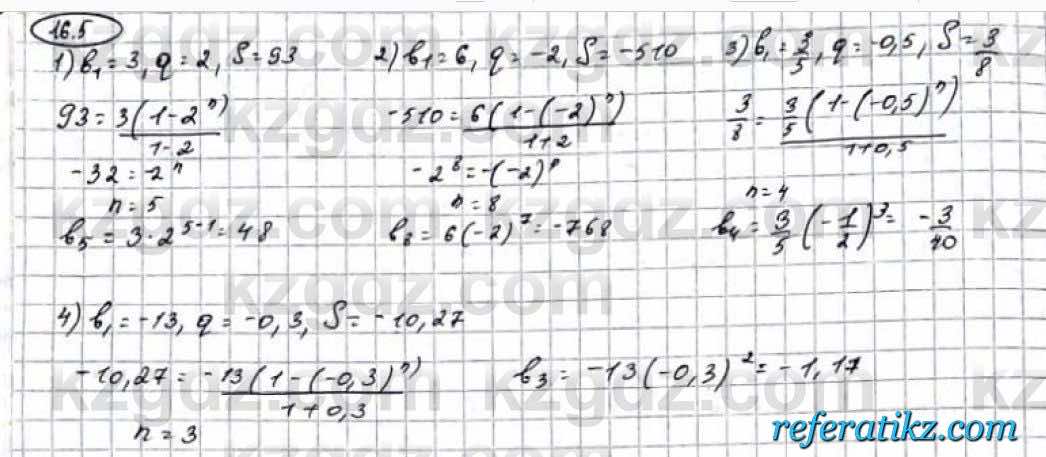 16.5
1) b₁ = 3, q = 2, S = 93
93 = 3(1-2ⁿ) / 1-2
-32 = -2ⁿ
n = 5
b₅ = 3·2⁵⁻¹ = 48
2) b₁ = 6, q = -2, S = -510
-510 = 6(1-(-2)ⁿ) / 1+2
-2⁸ = -(-2)ⁿ
n = 8
b₈ = 6(-2)⁷ = -768
3) b₁ = 3/5, q = -0,5, S = 3/8
3/8 = 3/5(1-(-0,5)ⁿ) / 1+0,5
n = 4
b₄ = 3/5(-1/2)³ = -3/40
4) b₁ = -13, q = -0,3, S = -10,27
-10,27 = -13(1-(-0,3)ⁿ) / 1+0,3
n = 3
b₃ = -13(-0,3)² = -1,17
kzgdz.com
referatikz.com